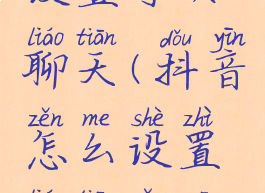 liáo tiān dǒu yīn
聊天(抖音
zěn me shè zhì
怎么设置